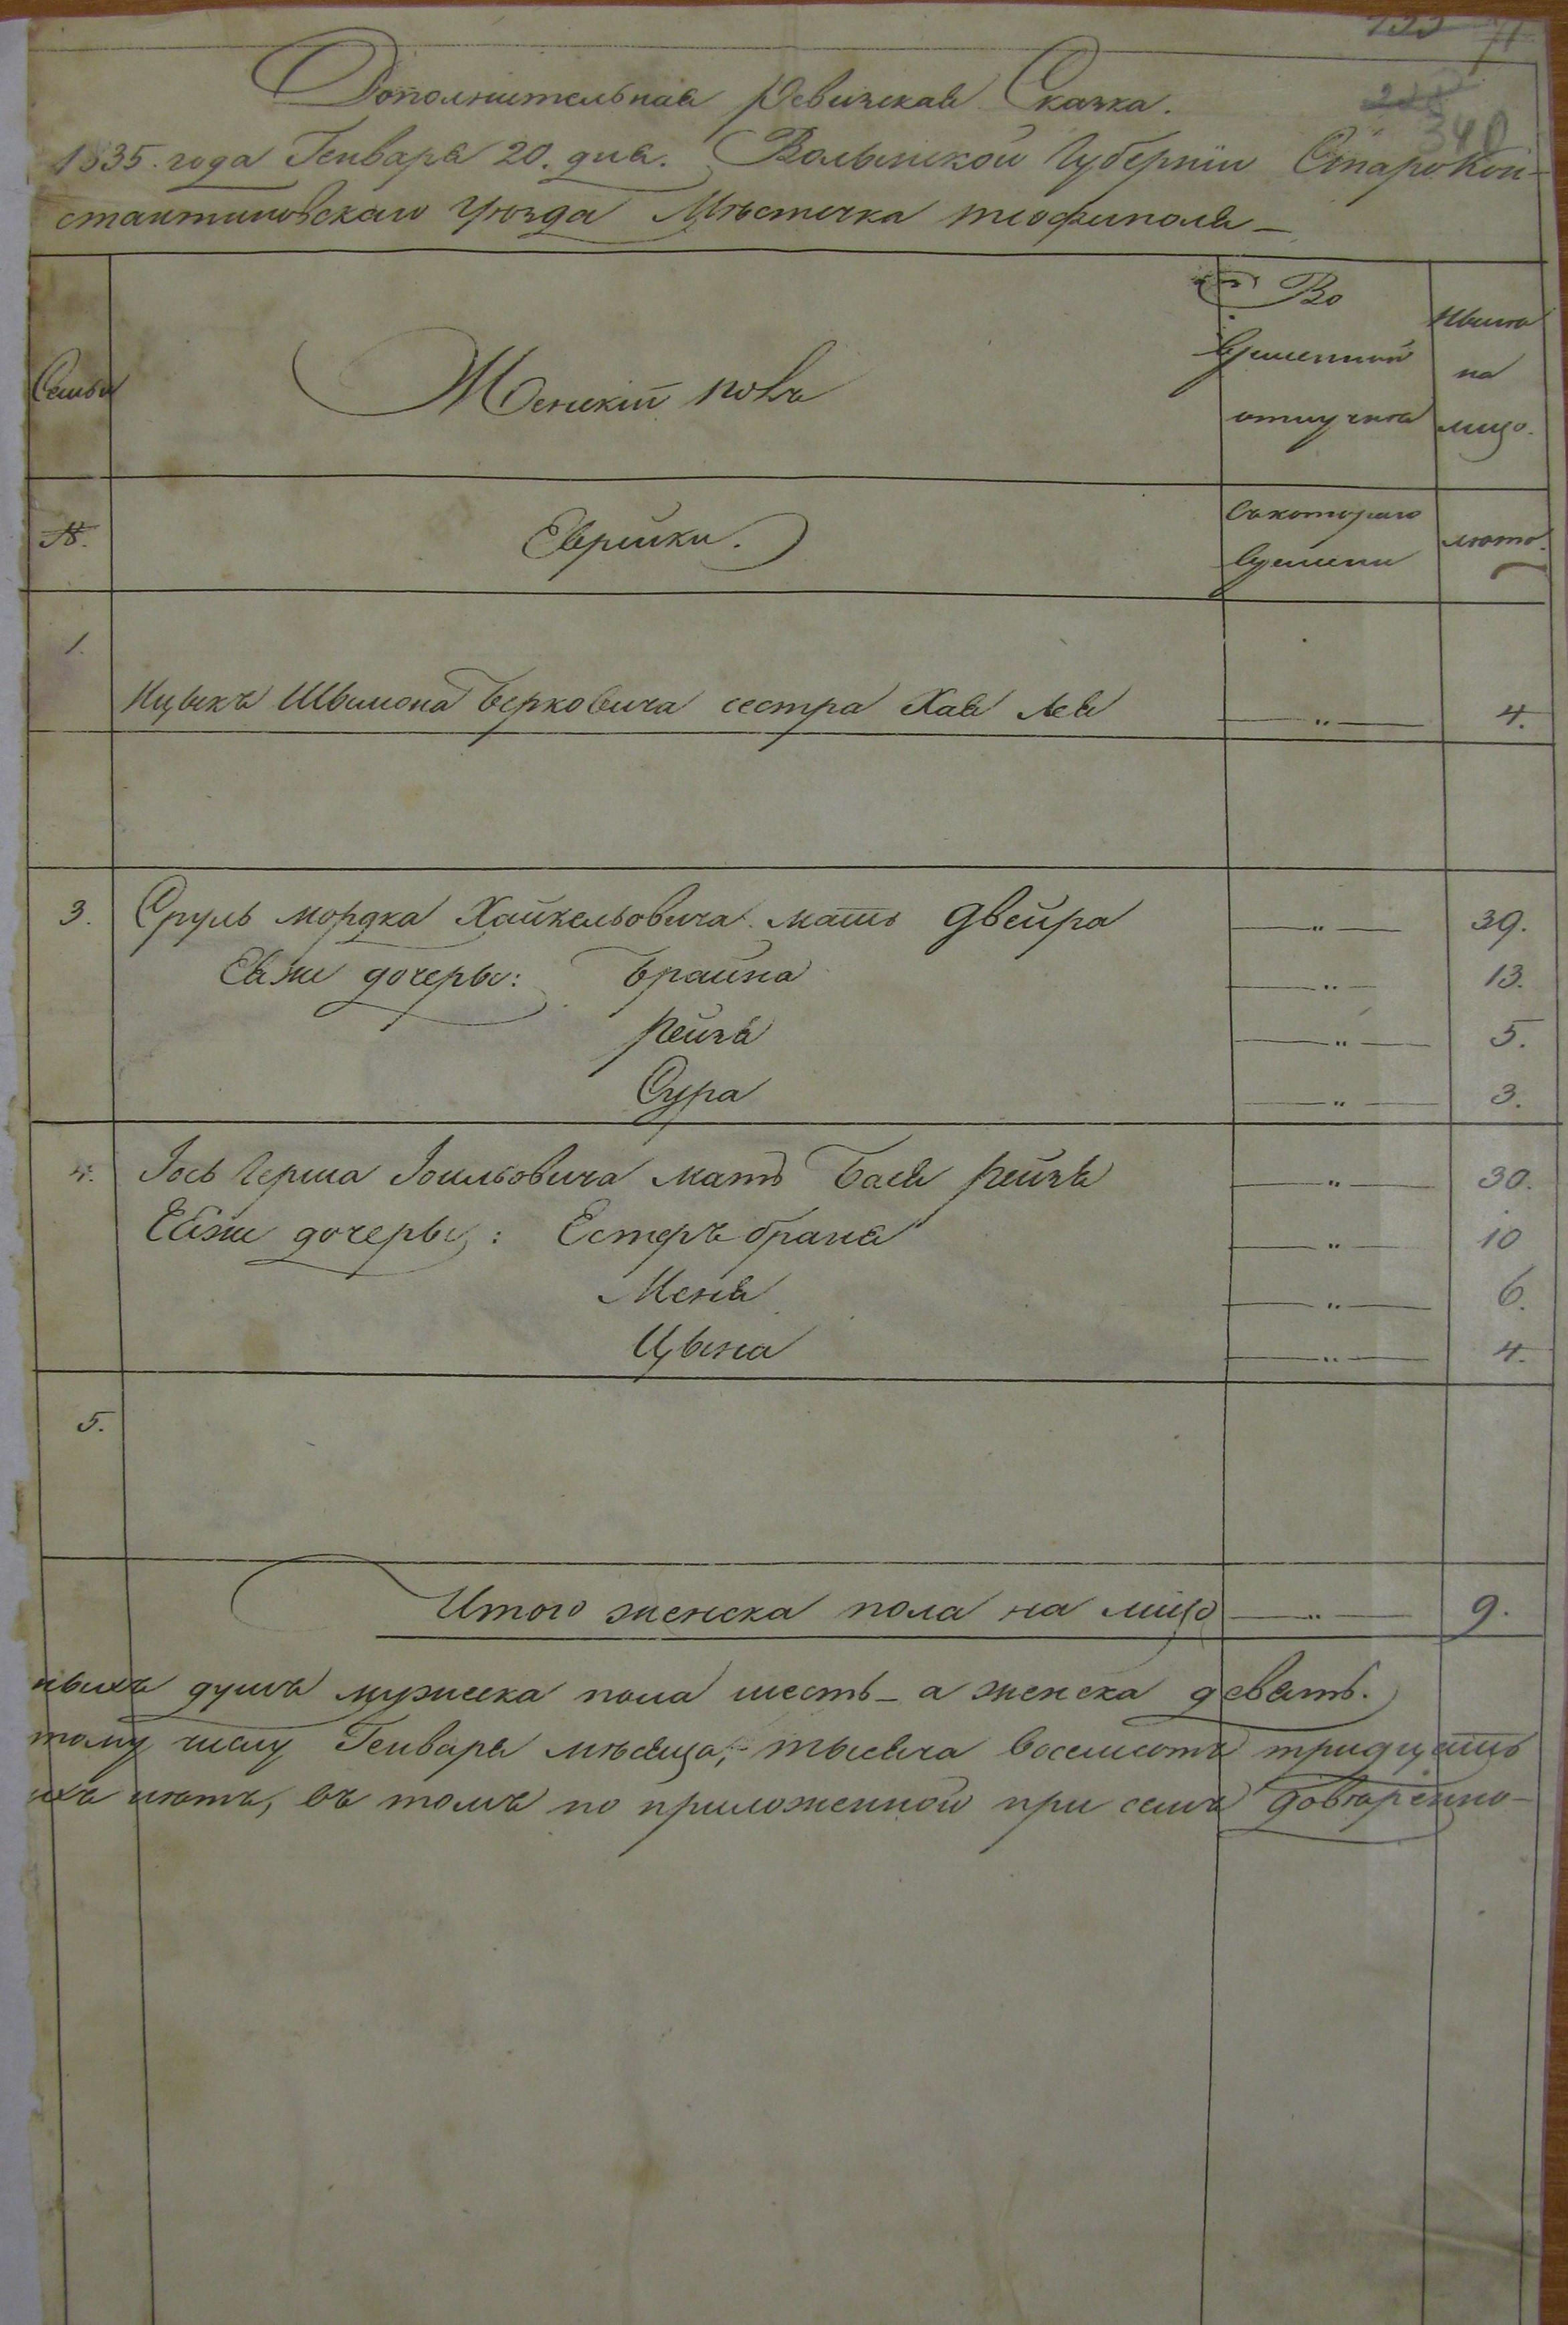 340
Дополнительная Ревизская Сказка.
1835. года Генваря 20. дня. Волынской Губернiи Старокон-
стантиновскаго Уѣзда Мѣстечка Теофиполя
Семьи
Женскiй полъ
Во
временной
отлучкѣ
Нынѣ
на
лицо.
№.
Еврейки.
Съ котораго
времени
лѣта.
1.
Ицыкъ Шымона Берковича сестра Хая Лея — " — 4.
3. Сруль Мордка Хайкельовича мать Двейра — " — 39.
Ея же дочеры: Брайна — " — 13.
Рейзя — " — 5.
Сура — " — 3.
4. Iось Герша Iоильовича мать Бася Рейзя — " — 30.
Ея же дочеры: Естеръ брана — " — 10
Меня — " — 6.
Цына — " — 4.
5.
Итого женска пола на лицо — " — 9.
ныхъ душъ мужеска пола шесть – а женска девять.
тому числу Генваря мѣсяца, тысяча восемсотъ тридцать
ихъ нѣтъ, въ томъ по приложенной при семъ довѣренно-